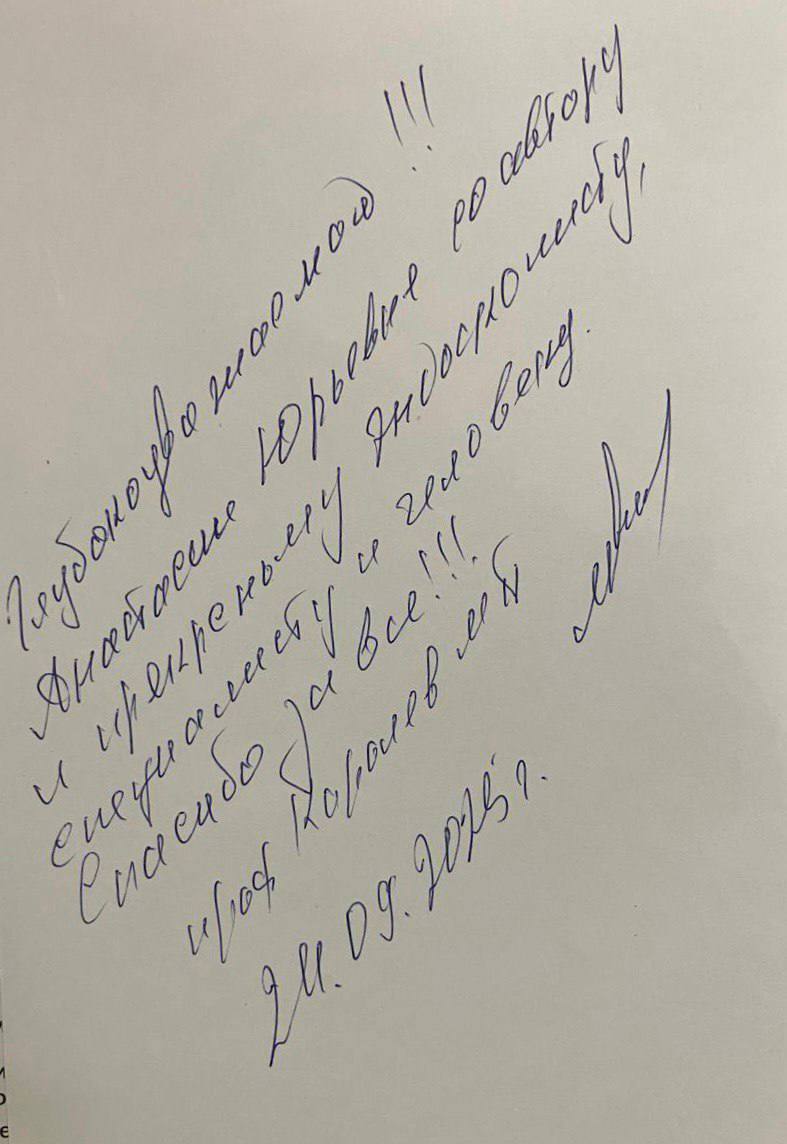 Глубокоуважаемой !!!
Анастасии Юрьевне соавтору
и прекрасному эндоскописту,
специалисту и человеку.
Спасибо за все!!!
проф Королев МП
24.09.2025 г.